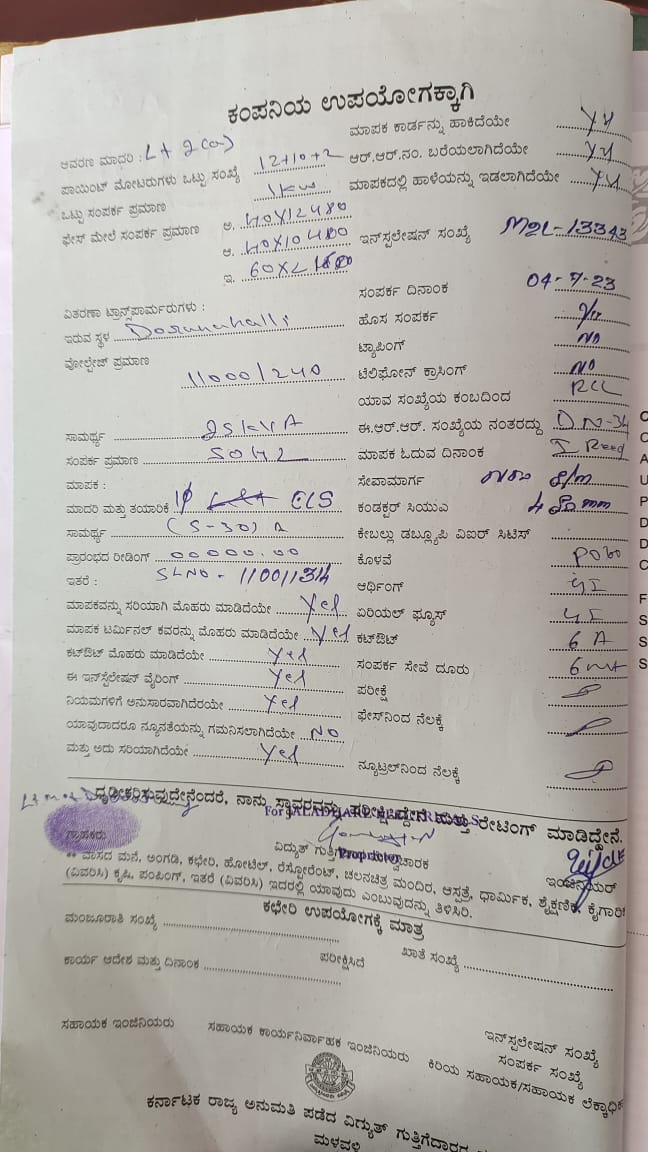 ಕಂಪನಿಯ ಉಪಯೋಗಕ್ಕಾಗಿ
ಆವರಣ ಮಾದರಿ : Lt 2(a) ಮಾಪಕ ಕಾರ್ಡನ್ನು ಹಾಕಿದೆಯೇ
ಪಾಯಿಂಟ್ ಮೋಟರುಗಳು ಒಟ್ಟು ಸಂಖ್ಯೆ 12+10+2 ಆರ್.ಆರ್.ನಂ. ಬರೆಯಲಾಗಿದೆಯೇ
ಒಟ್ಟು ಸಂಪರ್ಕ ಪ್ರಮಾಣ 1kw ಮಾಪಕದಲ್ಲಿ ಹಾಳೆಯನ್ನು ಇಡಲಾಗಿದೆಯೇ
ಫೇಸ್ ಮೇಲೆ ಸಂಪರ್ಕ ಪ್ರಮಾಣ ಅ. 40X12 480
ಆ. 40X10 400 ಇನ್‌ಸ್ಟಲೇಷನ್ ಸಂಖ್ಯೆ M2L-13343
ಇ. 60X2
ವಿತರಣಾ ಟ್ರಾನ್ಸ್‌ಫಾರ್ಮರುಗಳು : ಸಂಪರ್ಕ ದಿನಾಂಕ 04-7-23
ಇರುವ ಸ್ಥಳ ಹೊಸ ಸಂಪರ್ಕ
ವೋಲ್ಟೇಜ್ ಪ್ರಮಾಣ ಟ್ಯಾಪಿಂಗ್ NO
11000/240 ಟೆಲಿಫೋನ್ ಕ್ರಾಸಿಂಗ್ NO
ಯಾವ ಸಂಖ್ಯೆಯ ಕಂಬದಿಂದ RCC
ಸಾಮರ್ಥ್ಯ 25KVA ಈ.ಆರ್.ಆರ್. ಸಂಖ್ಯೆಯ ನಂತರದ್ದು
ಸಂಪರ್ಕ ಪ್ರಮಾಣ 50HZ ಮಾಪಕ ಓದುವ ದಿನಾಂಕ I Reed
ಮಾಪಕ : ಸೇವಾಮಾರ್ಗ S/m
ಮಾದರಿ ಮತ್ತು ತಯಾರಿಕೆ 1φ ECS ಕಂಡಕ್ಟರ್ ಸಿಯುಎ
ಸಾಮರ್ಥ್ಯ (5-30) A ಕೇಬಲ್ಲು ಡಬ್ಲ್ಯೂಪಿ ವಿಐರ್ ಸಿಟಿಸ್
ಪ್ರಾರಂಭದ ರೀಡಿಂಗ್ 00000.00 ಕೊಳವೆ
ಇತರೆ : SLNO - 110011314 ಆರ್ಥಿಂಗ್ GI
ಮಾಪಕವನ್ನು ಸರಿಯಾಗಿ ಮೊಹರು ಮಾಡಿದೆಯೇ Yes ಏರಿಯಲ್ ಫ್ಯೂಸ್ GI
ಮಾಪಕ ಟರ್ಮಿನಲ್ ಕವರನ್ನು ಮೊಹರು ಮಾಡಿದೆಯೇ Yes ಕಟ್‌ಔಟ್ 6 A
ಕಟ್‌ಔಟ್ ಮೊಹರು ಮಾಡಿದೆಯೇ Yes ಸಂಪರ್ಕ ಸೇವೆ ದೂರು 6 mt
ಈ ಇನ್‌ಸ್ಟಲೇಷನ್ ವೈರಿಂಗ್ Yes ಪರೀಕ್ಷೆ
ನಿಯಮಗಳಿಗೆ ಅನುಸಾರವಾಗಿದೆಯೇ Yes ಫೇಸ್‌ನಿಂದ ನೆಲಕ್ಕೆ
ಯಾವುದಾದರೂ ನ್ಯೂನತೆಯನ್ನು ಗಮನಿಸಲಾಗಿದೆಯೇ NO
ಮತ್ತು ಅದು ಸರಿಯಾಗಿದೆಯೇ Yes ನ್ಯೂಟ್ರಲ್‌ನಿಂದ ನೆಲಕ್ಕೆ
ದೃಢೀಕರಿಸುವುದೇನೆಂದರೆ, ನಾನು ಸ್ಥಾವರವನ್ನು ಪರೀಕ್ಷಿಸಿದ್ದೇನೆ ಮತ್ತು ರೇಟಿಂಗ್ ಮಾಡಿದ್ದೇನೆ.
ಗ್ರಾಹಕರು ವಿದ್ಯುತ್ ಗುತ್ತಿಗೆದಾರ ಇಂಜಿನಿಯರ್
Proprietor
** ವಾಸದ ಮನೆ, ಅಂಗಡಿ, ಕಛೇರಿ, ಹೋಟೆಲ್, ರೆಸ್ಟೋರೆಂಟ್, ಚಲನಚಿತ್ರ ಮಂದಿರ, ಆಸ್ಪತ್ರೆ, ಧಾರ್ಮಿಕ, ಶೈಕ್ಷಣಿಕ, ಕೈಗಾರಿಕೆ
(ವಿವರಿಸಿ) ಕೃಷಿ, ಪಂಪಿಂಗ್, ಇತರೆ (ವಿವರಿಸಿ) ಇದರಲ್ಲಿ ಯಾವುದು ಎಂಬುವುದನ್ನು ತಿಳಿಸಿರಿ.
ಕಛೇರಿ ಉಪಯೋಗಕ್ಕೆ ಮಾತ್ರ
ಮಂಜೂರಾತಿ ಸಂಖ್ಯೆ
ಕಾರ್ಯ ಆದೇಶ ಮತ್ತು ದಿನಾಂಕ ಪರೀಕ್ಷಿಸಿದೆ ಖಾತೆ ಸಂಖ್ಯೆ
ಸಹಾಯಕ ಇಂಜಿನಿಯರು ಸಹಾಯಕ ಕಾರ್ಯನಿರ್ವಾಹಕ ಇಂಜಿನಿಯರು ಇನ್‌ಸ್ಟಲೇಷನ್ ಸಂಖ್ಯೆ
ಸಂಪರ್ಕ ಸಂಖ್ಯೆ
ಕಿರಿಯ ಸಹಾಯಕ/ಸಹಾಯಕ ಲೆಕ್ಕಾಧಿಕ
ಕರ್ನಾಟಕ ರಾಜ್ಯ ಅನುಮತಿ ಪಡೆದ ವಿದ್ಯುತ್ ಗುತ್ತಿಗೆದಾರರ
ಮಳವಳ್ಳಿ